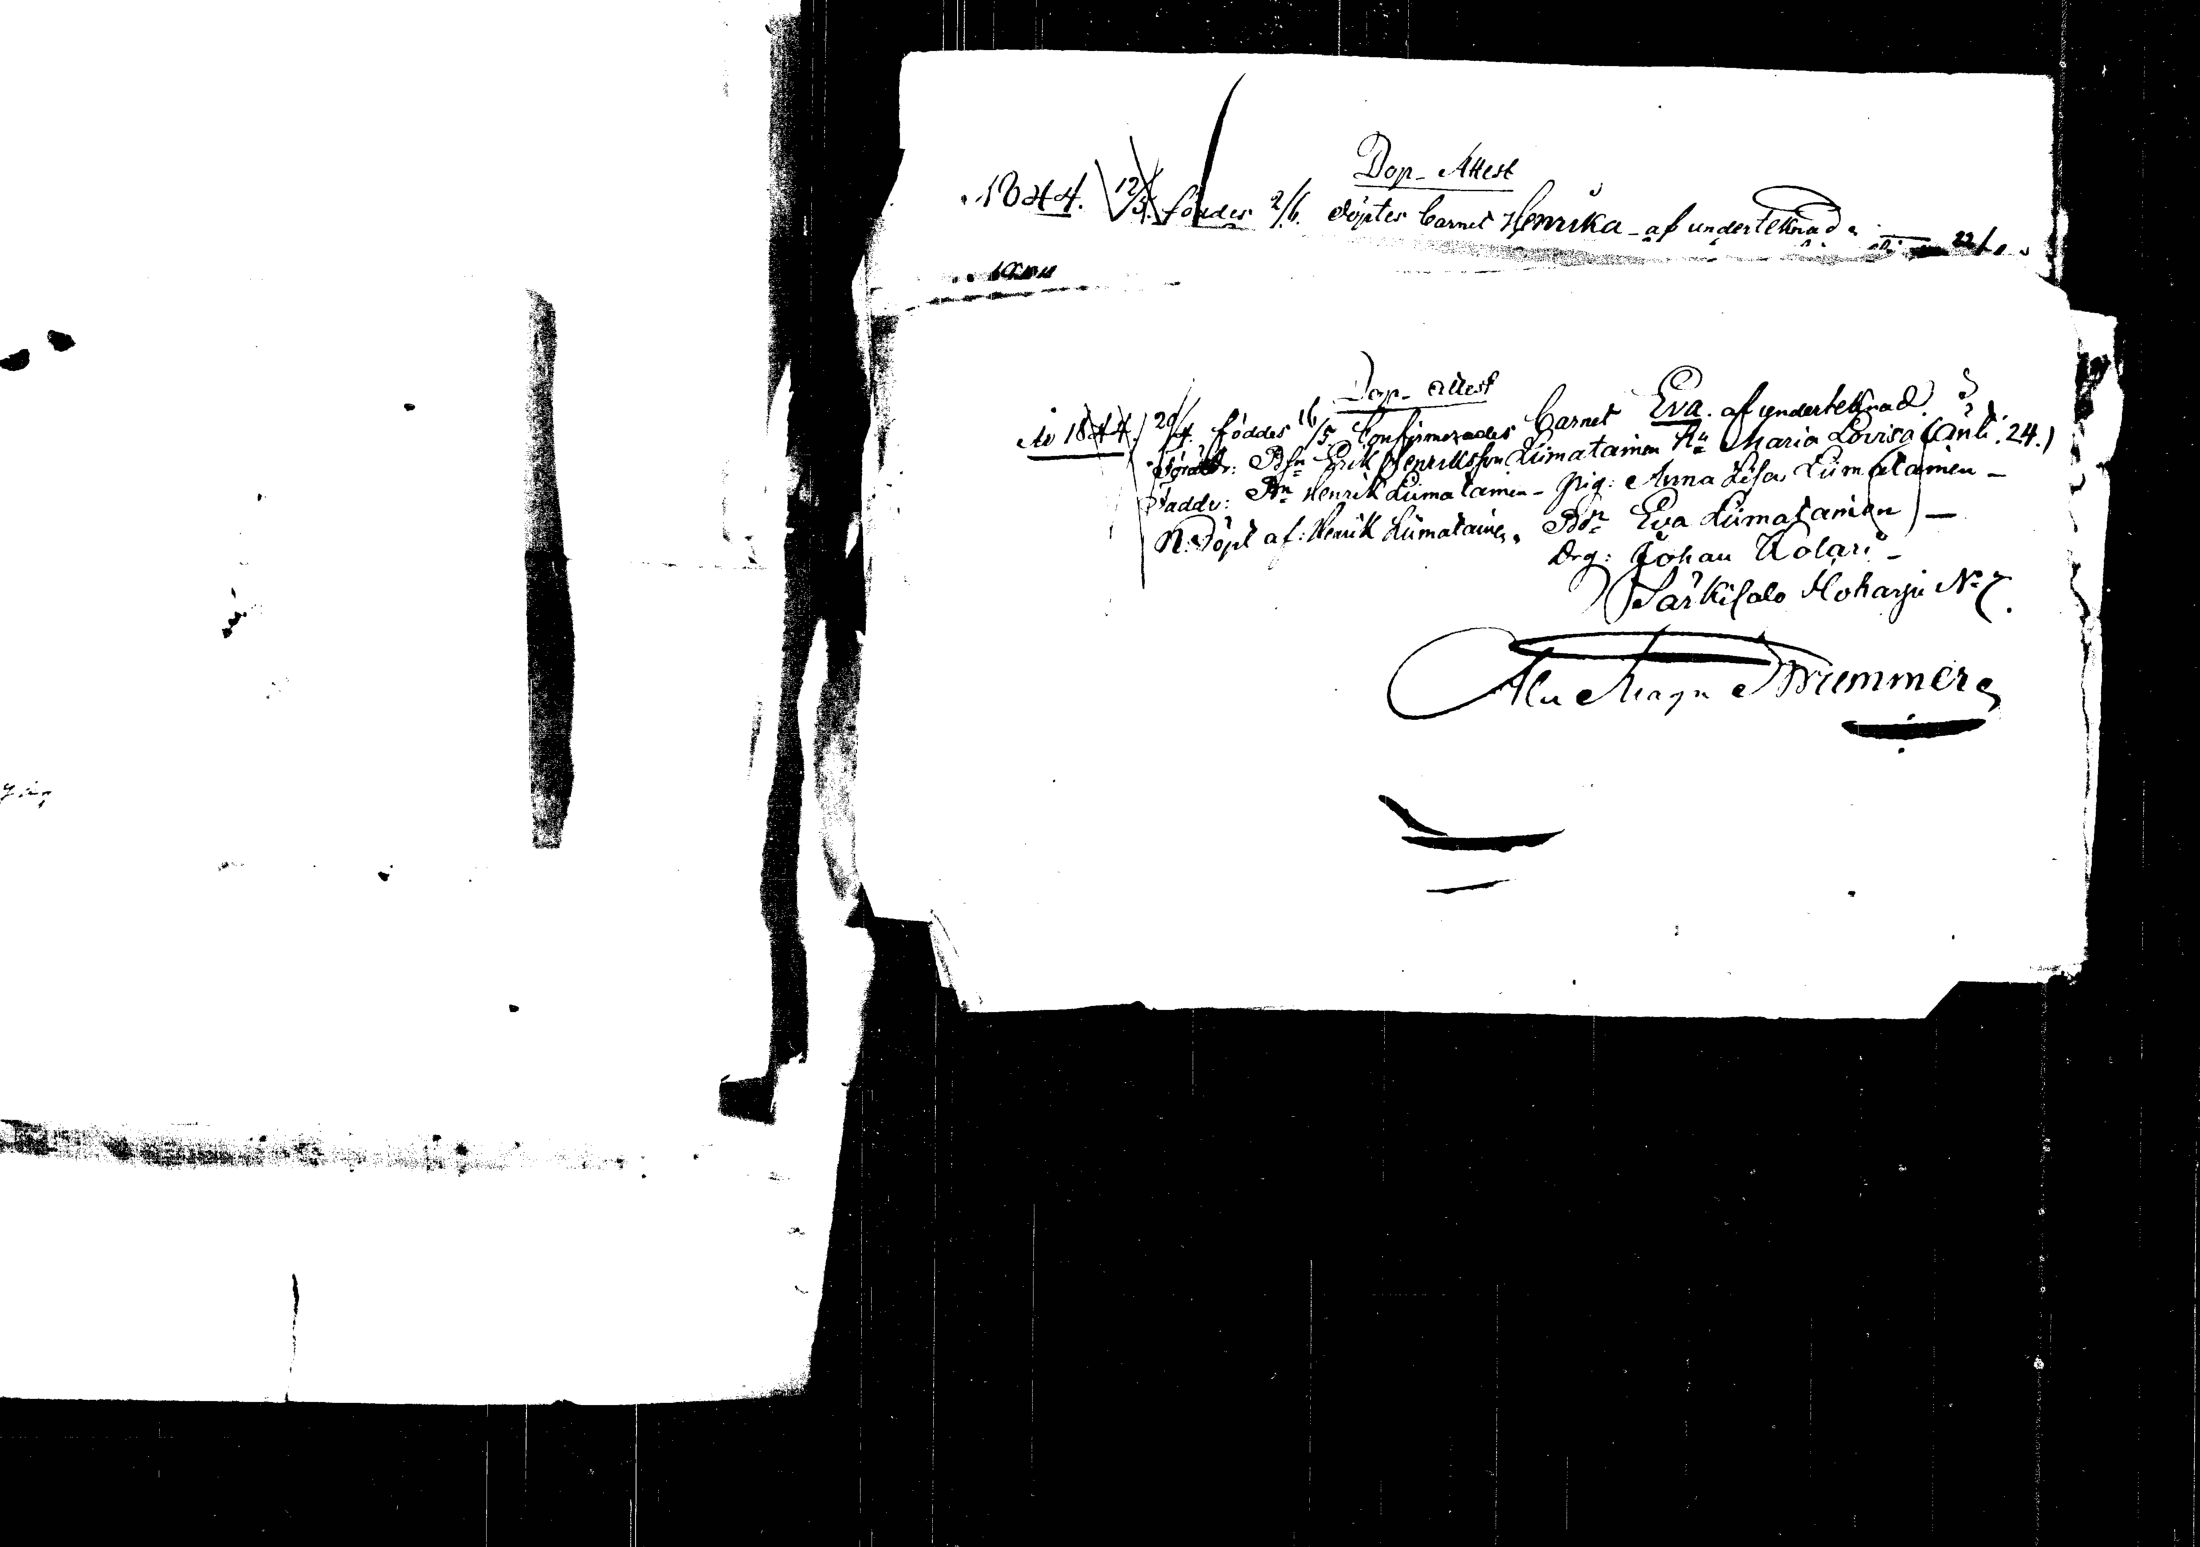 Dop-Attest
1844. 12/5. föddes 2/6. döptes barnet Henrika af undertecknad
Dop-Attest
År 1844. 29/4. föddes 16/5 Confirmerades Barnet Eva. af undertecknad.
Föräldr: Bsn Erik Henriksson Liimatainen Hu Maria Lovisa (Ant: 24.)
Faddr: Bn Henrik Liimatainen - pig: Anna Lisa Liimatainen -
N. Döpt af: Henrik Liimatainen. Bdr Eva Liimatainen -
Drg: Johan Kolari -
Särkisalo Hoharju No 7.